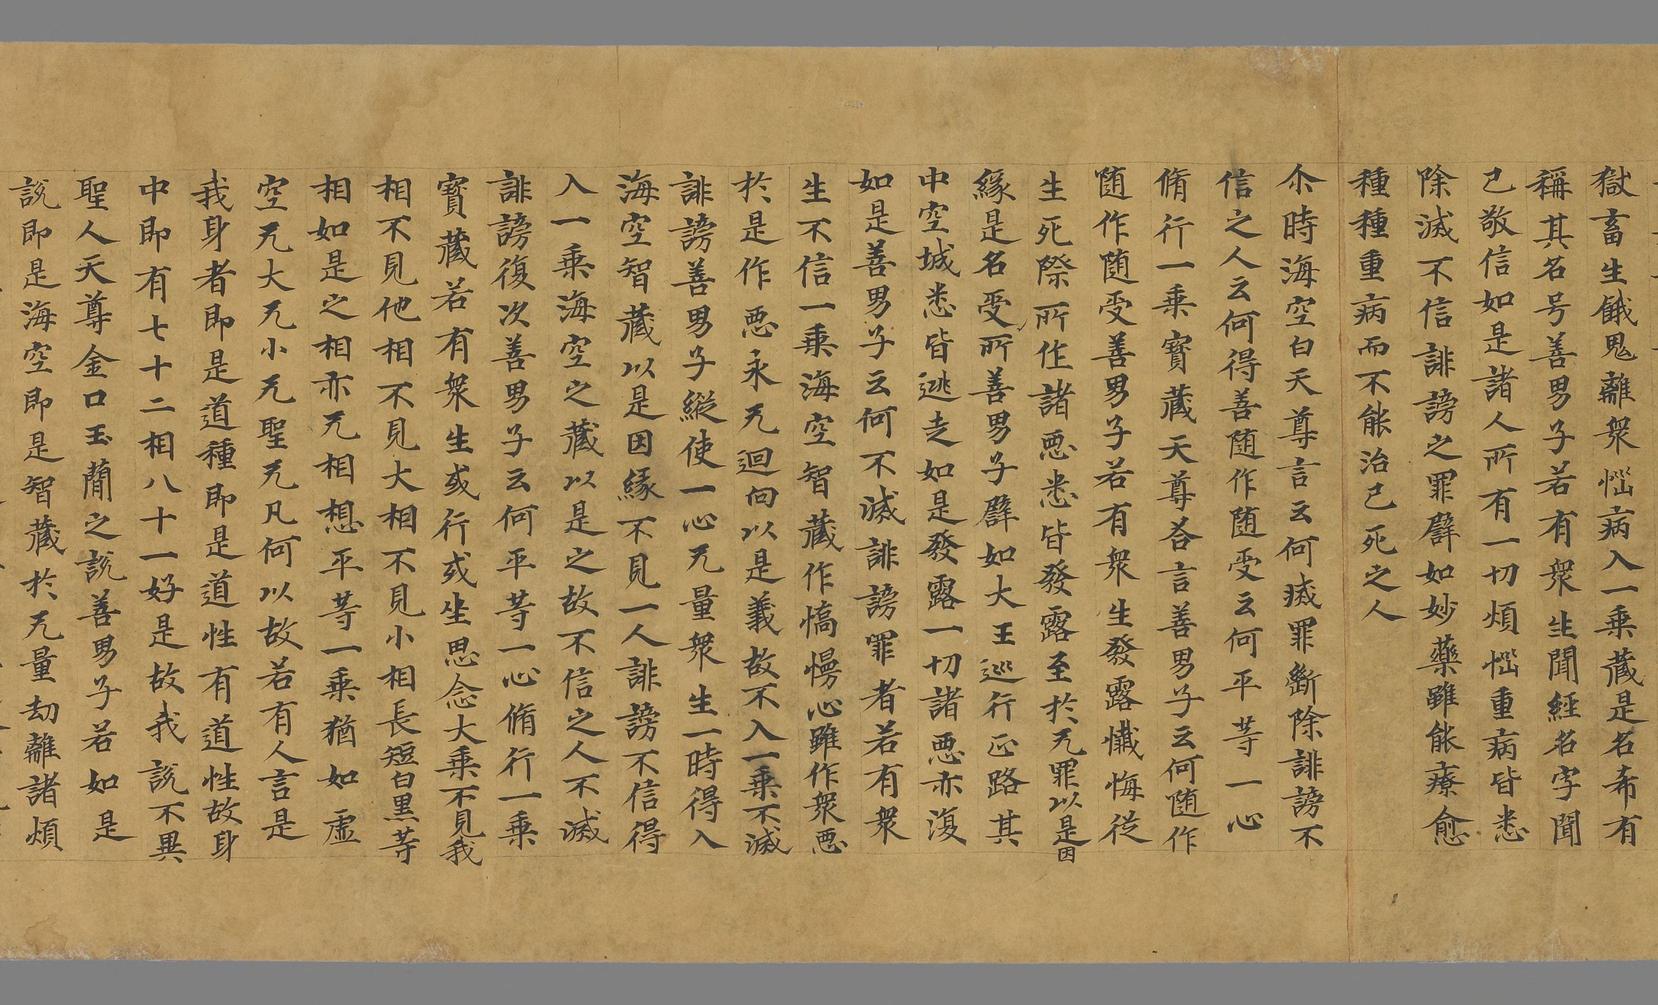 獄畜生餓鬼離衆惱病入一乗藏是名希有
稱其名号善男子若有衆生聞經名字聞
已敬信如是諸人所有一切煩惱重病皆悉
除滅不信誹謗之罪譬如妙藥雖能療愈
種種重病而不能治已死之人
尒時海空白天尊言云何滅罪斷除誹謗不
信之人云何得善随作随受云何平等一心
脩行一乗寶藏天尊荅言善男子云何随作
随作随受善男子若有衆生發露懺悔従
生死際所作諸悪悉皆發露至於无罪以是因
緣是名受所善男子譬如大王巡行正路其
中空城悉皆逃走如是發露一切諸悪亦復
如是善男子云何不滅誹謗罪者若有衆
生不信一乗海空智藏作憍慢心雖作衆悪
於是作悪永无迴向以是義故不入一乗不滅
誹謗善男子縦使一心无量衆生一時得入
海空智藏以是因緣不見一人誹謗不信得
入一乗海空之藏以是之故不信之人不滅
誹謗復次善男子云何平等一心脩行一乗
寶藏若有衆生或行或坐思念大乗不見我
相不見他相不見大相不見小相長短白黒等
相如是之相亦无相想平等一乗猶如虚
空无大无小无聖无凡何以故若有人言是
我身者即是道種即是道性有道性故身
中即有七十二相八十一好是故我說不異
聖人天尊金口玉蕳之說善男子若如是
說即是海空即是智藏於无量劫離諸煩